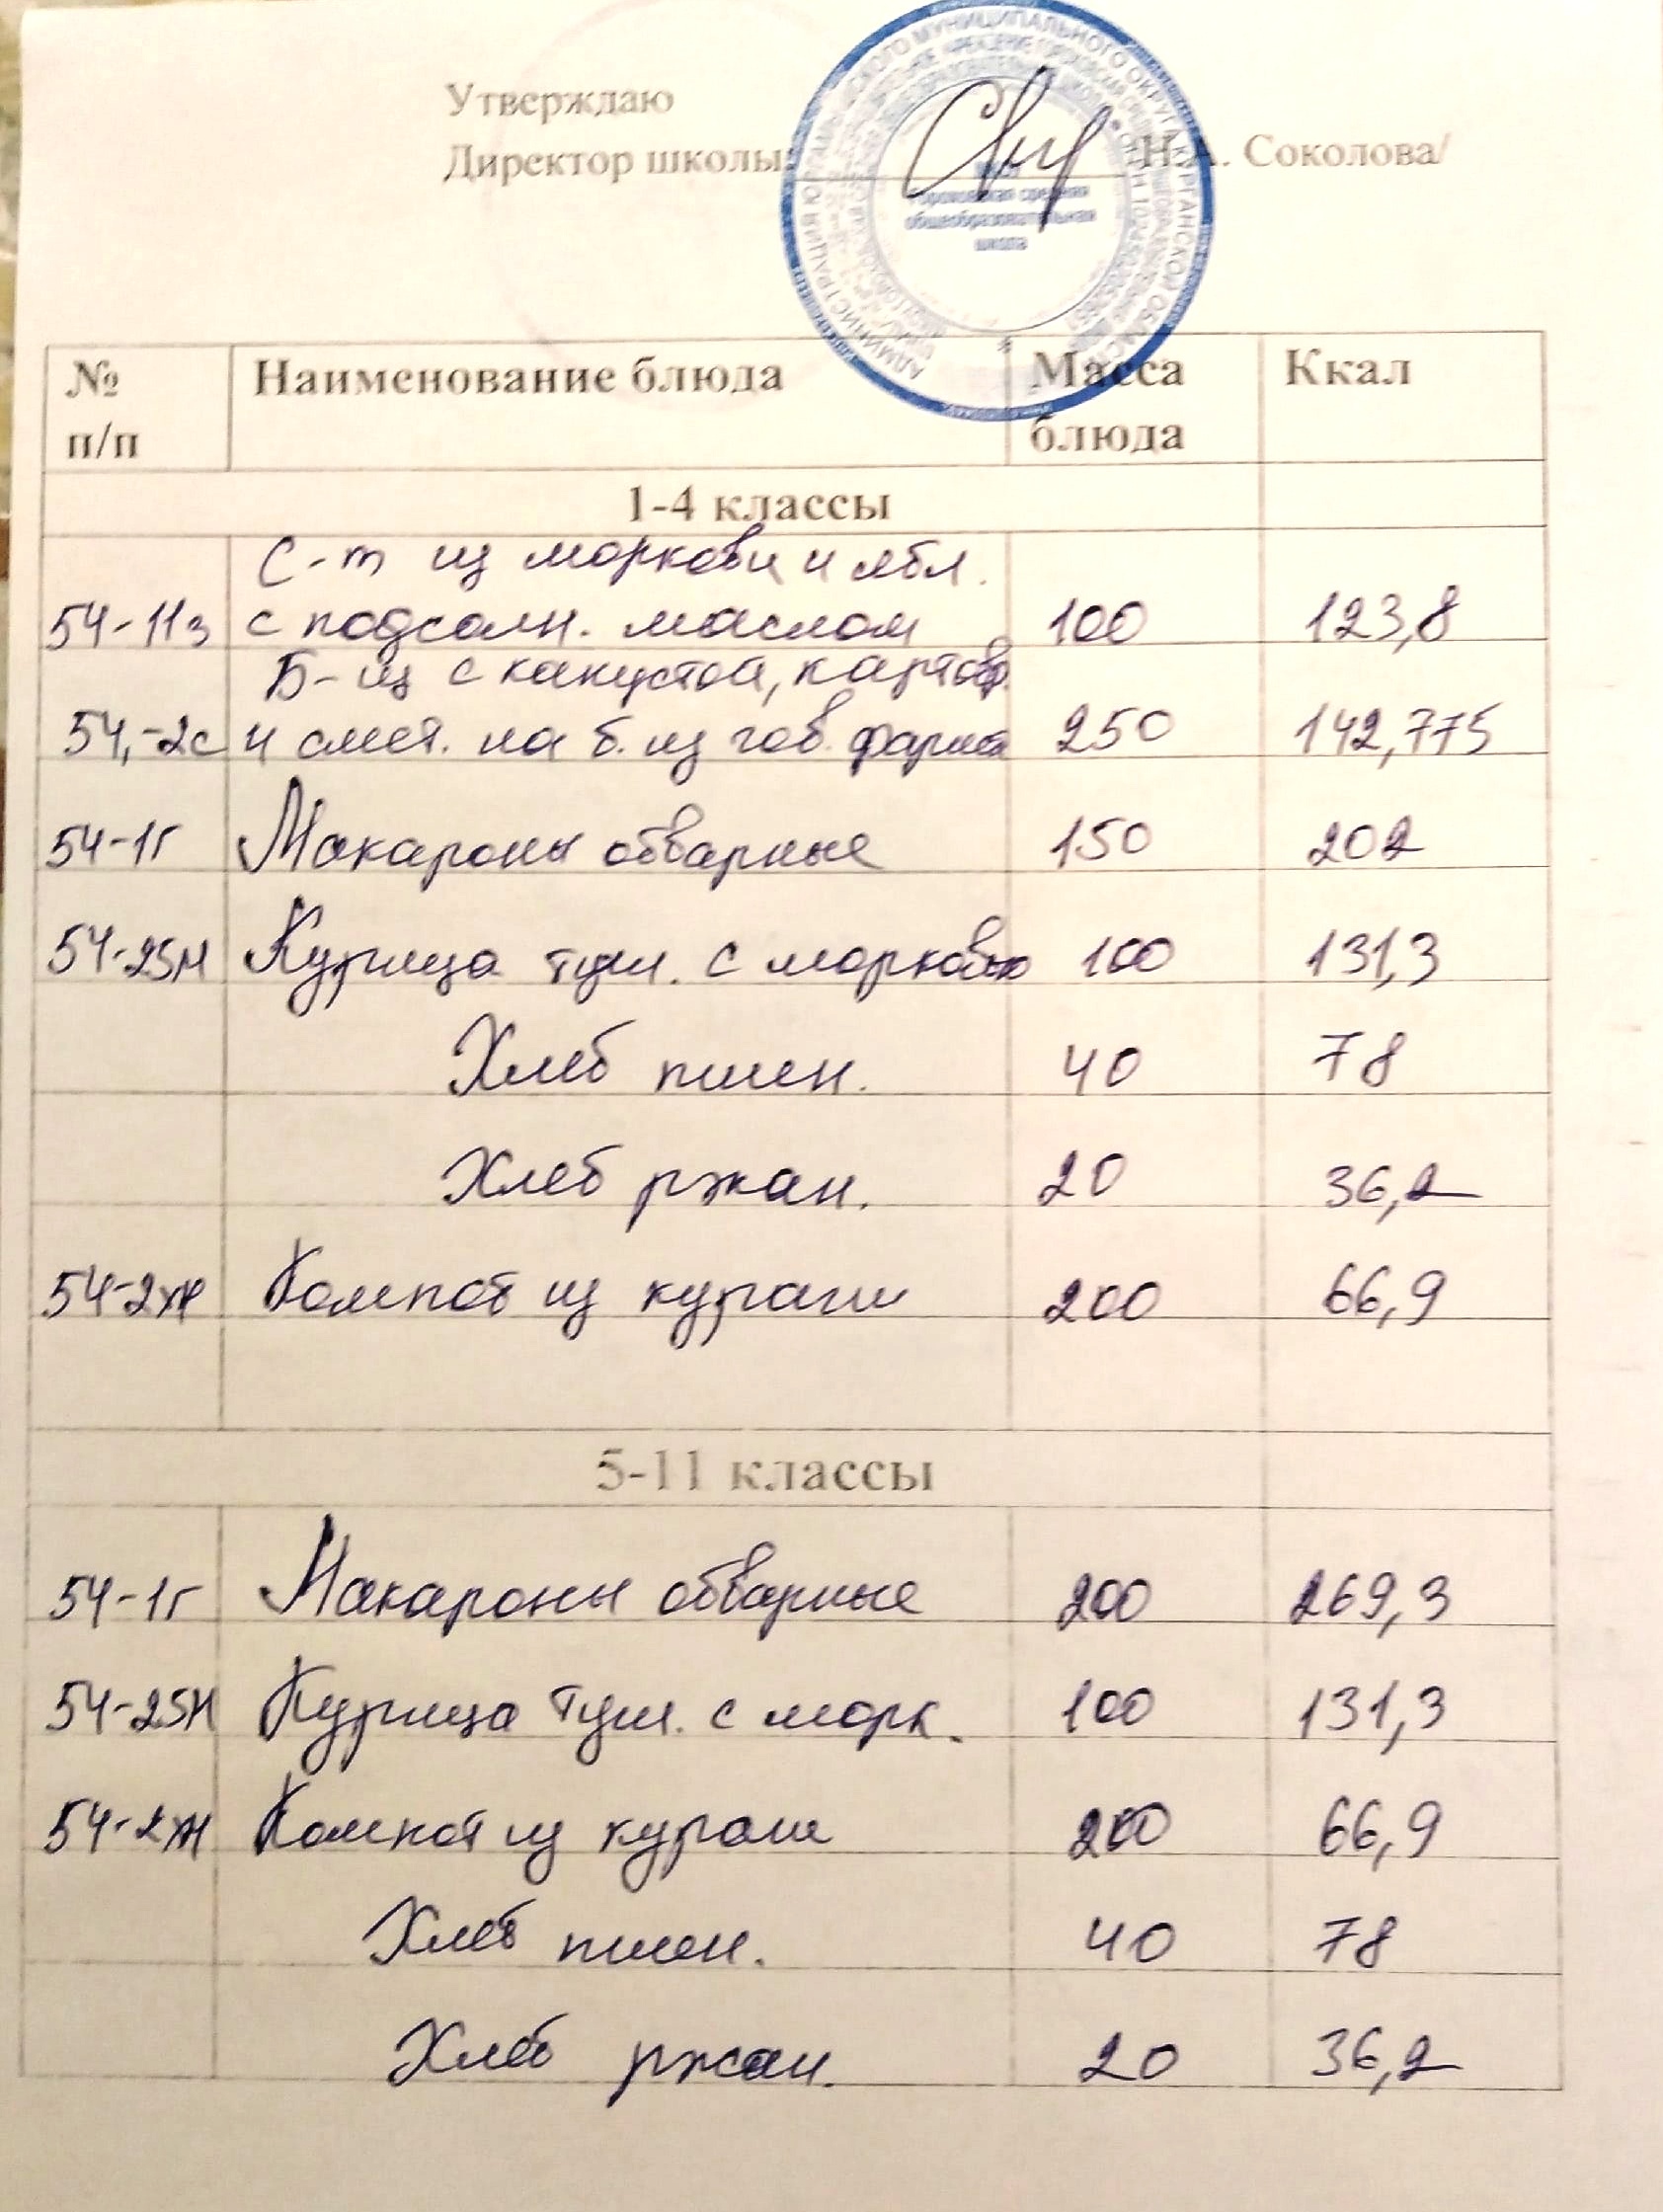 Утверждаю
Директор школы: Н.А. Соколова/
Гороховская средняя
общеобразовательная
школа
№ Наименование блюда Масса Ккал
п/п блюда
1-4 классы
С-т из моркови и ябл.
54-11з с подсолн. маслом 100 123,8
Б-щ с капустой, картоф.
54,-2с и смет. на б. из гов. фарша 250 142,775
54-1г Макароны отварные 150 202
54-25м Курица туш. с морковью 100 131,3
Хлеб пшен. 40 78
Хлеб ржан. 20 36,2
54-2хн Компот из кураги 200 66,9
5-11 классы
54-1г Макароны отварные 200 269,3
54-25м Курица туш. с морк. 100 131,3
54-2хн Компот из кураги 200 66,9
Хлеб пшен. 40 78
Хлеб ржан. 20 36,2